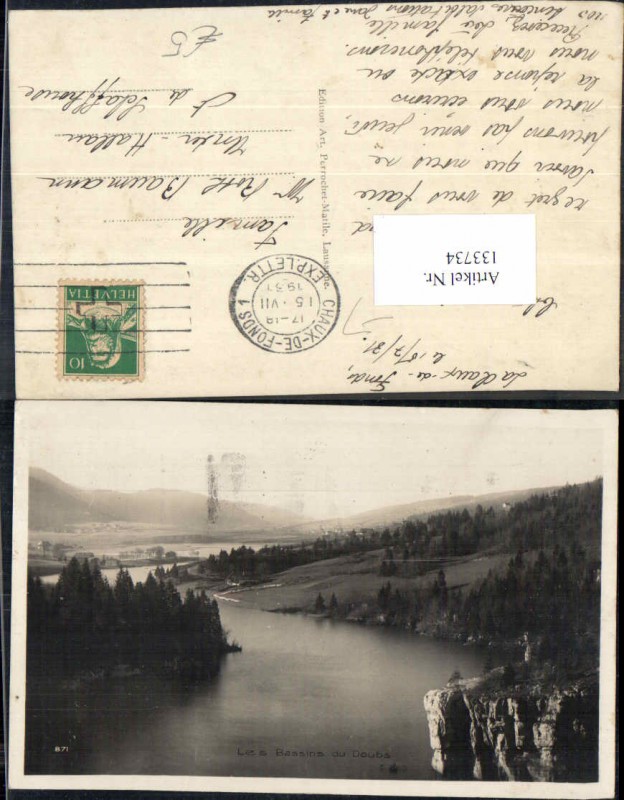 La Chaux-de-Fonds,
le 15/7/31.
regret de vous faire
savoir que nous ne
pouvons pas venir jeudi,
nous vous écrivons
la réponse exacte ou
nous vous téléphonerons.
Recevez, chère famille
nos sincères salutations
famille
Edition Art. Perrochet-Matile, Lausanne.
CHAUX-DE-FONDS 1
EXP.LETTR.
17-18
15·VII
1931
HELVETIA
10
5
Famille
Mr Baumann
Unter-Hallau
Ct de Schaffhouse
£5
Artikel Nr.
133734
871
Les Bassins du Doubs